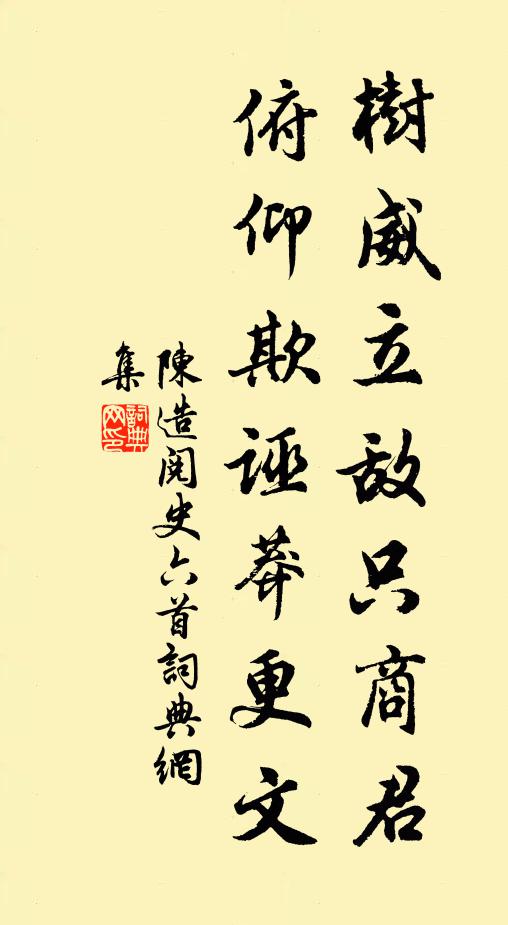 樹威立敌只商君
俯仰欺誣莽更文
陳造閱史六首詞典網
集
詞典
网印